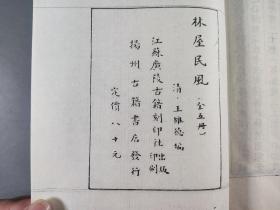 林屋民風（全五册）
清·王維德編
江蘇廣陵古籍刻印社出版印刷
揚州古籍書店發行
定價八十元